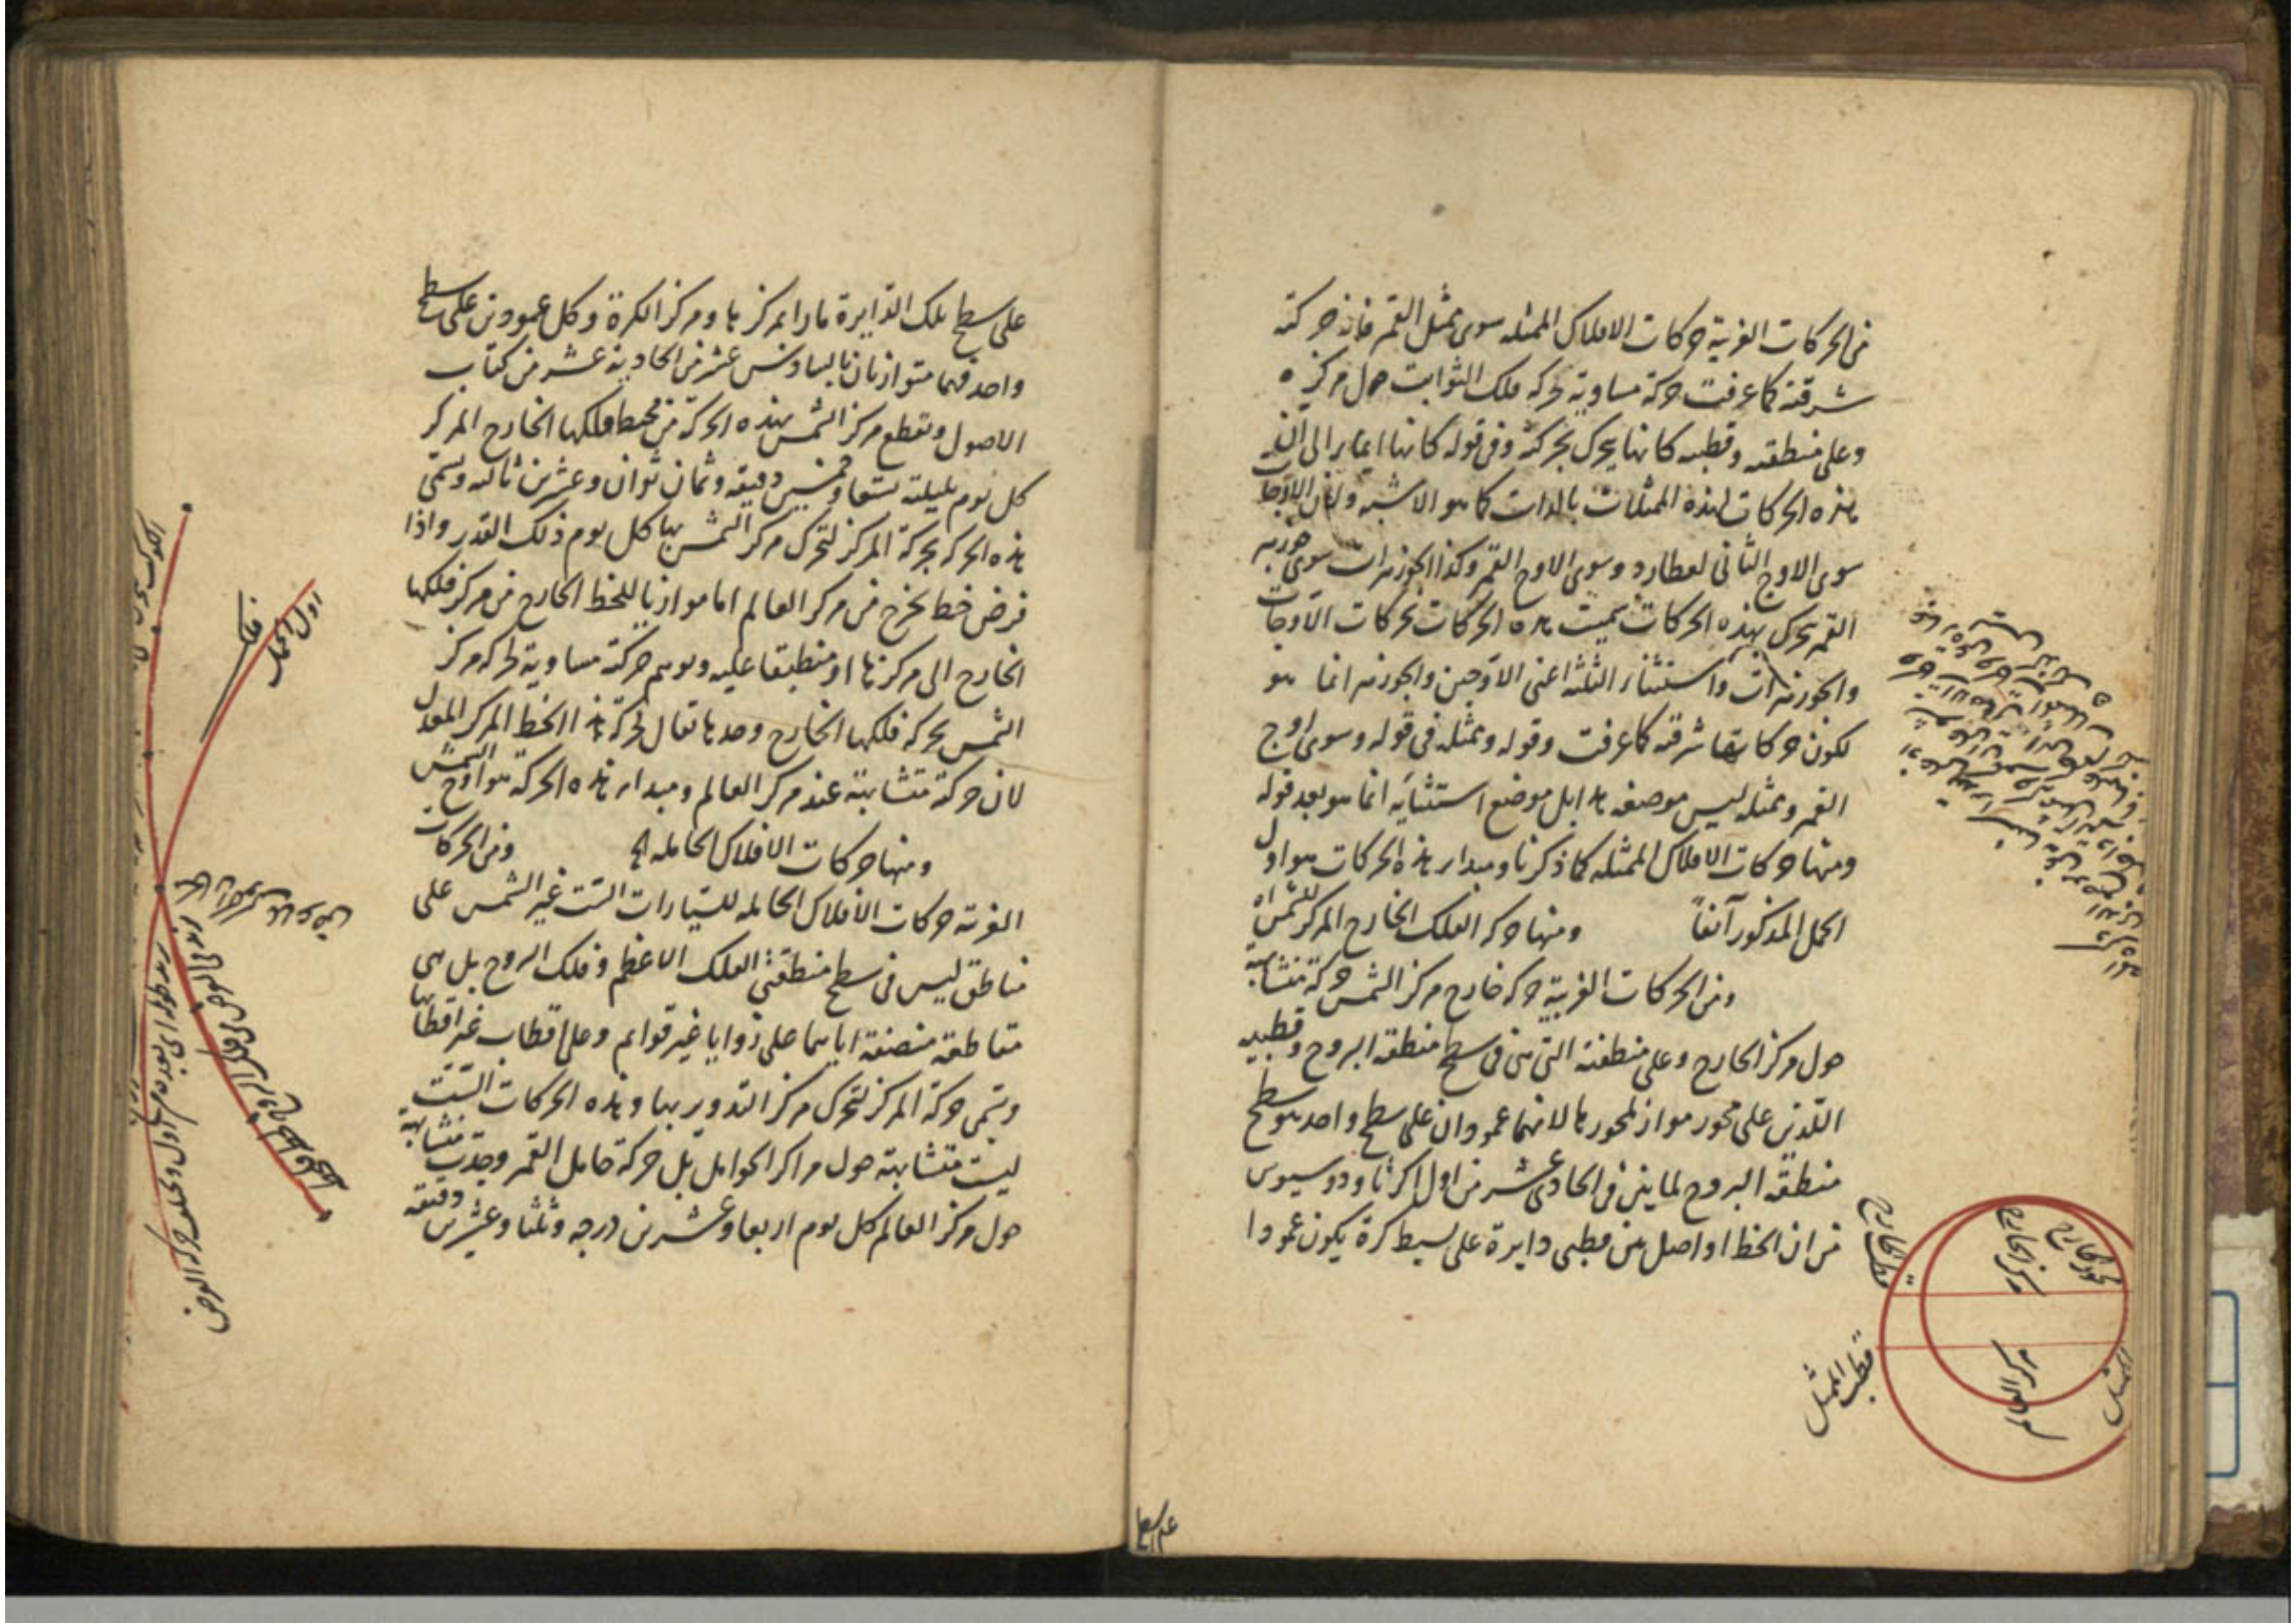 من الحركات الغربية حركات الافلاك الممثله سوى ممثل القمر فانه حركته
شرقية كما عرفت حركة مساوية لحركه فلك الثوابت حول مركزه
وعلى منطقته وقطبيه كانها يتحرك بحركته وفى قوله كانها ايماء الى ان
هذه الحركات لهذه الممثلات بالذات كما هو الاشبه ولان الاوجات
سوى الاوج الثانى لعطارد وسوى الاوج القمر وكذا الجوزهرات سوى جوزهر
القمر يتحرك بهذه الحركات سميت هذه الحركات بحركات الاوجات
والجوزهرات واستثناء الثلثة اعنى الاوجين والجوزهر انما هو
لكون حركاتها شرقية كما عرفت وقوله وممثله فى قوله وسوى اوج
القمر وممثله ليس موضعه هذا بل موضع استثنائه انما هو بعد قوله
ومنها حركات الافلاك الممثله كما ذكرنا ومبداء هذه الحركات هو اول
الحمل المذكور آنفاً ومنها حركه الفلك الخارج المركز للشمس اه
ومن الحركات الغربية حركه خارج مركز الشمس حركة متشابهة
حول مركز الخارج وعلى منطقته التى هى فى سطح منطقه البروج وقطبيه
اللذين على محور مواز لمحورها لانهما عمودان على سطح واحد هو سطح
منطقه البروج لما بين فى الحادى عشر من اولى اكر ثاودوسيوس
من ان الخط الواصل بين قطبى دايرة على بسيط كرة يكون عمودا
على سطح
فلك الخارج
محور الخارج
مركز الخارج
مركز العالم
قطب الممثل
الممثل
على سطح تلك الدايرة مارا بمركزها ومركز الكرة وكل عمودين على سطح
واحد فهما متوازيان بالسادس عشر من الحادية عشر من كتاب
الاصول ويقطع مركز الشمس بهذه الحركة من محيط فلكها الخارج المركز
كل يوم بليلته تسعا وخمسين دقيقه وثمان ثوان وعشرين ثالثه وتسمى
هذه الحركه بحركة المركز لتحرك مركز الشمس بها كل يوم ذلك القدر واذا
فرض خط يخرج من مركز العالم اما موازيا للخط الخارج من مركز فلكها
الخارج الى مركزها او منطبقا عليه وتوهم حركته مساوية لحركه مركز
الشمس بحركه فلكها الخارج وحدها يقال لحركة هذا الخط المركز المعدل
لان حركته متشابهة عند مركز العالم ومبداء هذه الحركة هو اوج الشمس
ومنها حركات الافلاك الحامله اه ومن الحركات
الغربية حركات الافلاك الحاملة للسيارات الست غير الشمس على
مناطق ليس فى سطح منطقتى الفلك الاعظم وفلك البروج بل هى
متقاطعه منصفة اياهما على زوايا غير قوايم وعلى اقطاب غير اقطابها
وتسمى حركة المركز لتحرك مركز التدوير بها وهذه الحركات الست
ليست متشابهة حول مراكز الحوامل بل حركة حامل القمر وجدت متشابهة
حول مركز العالم كل يوم اربعا وعشرين درجه وثلثا وعشرين دقيقه
اول الحمل
فلك